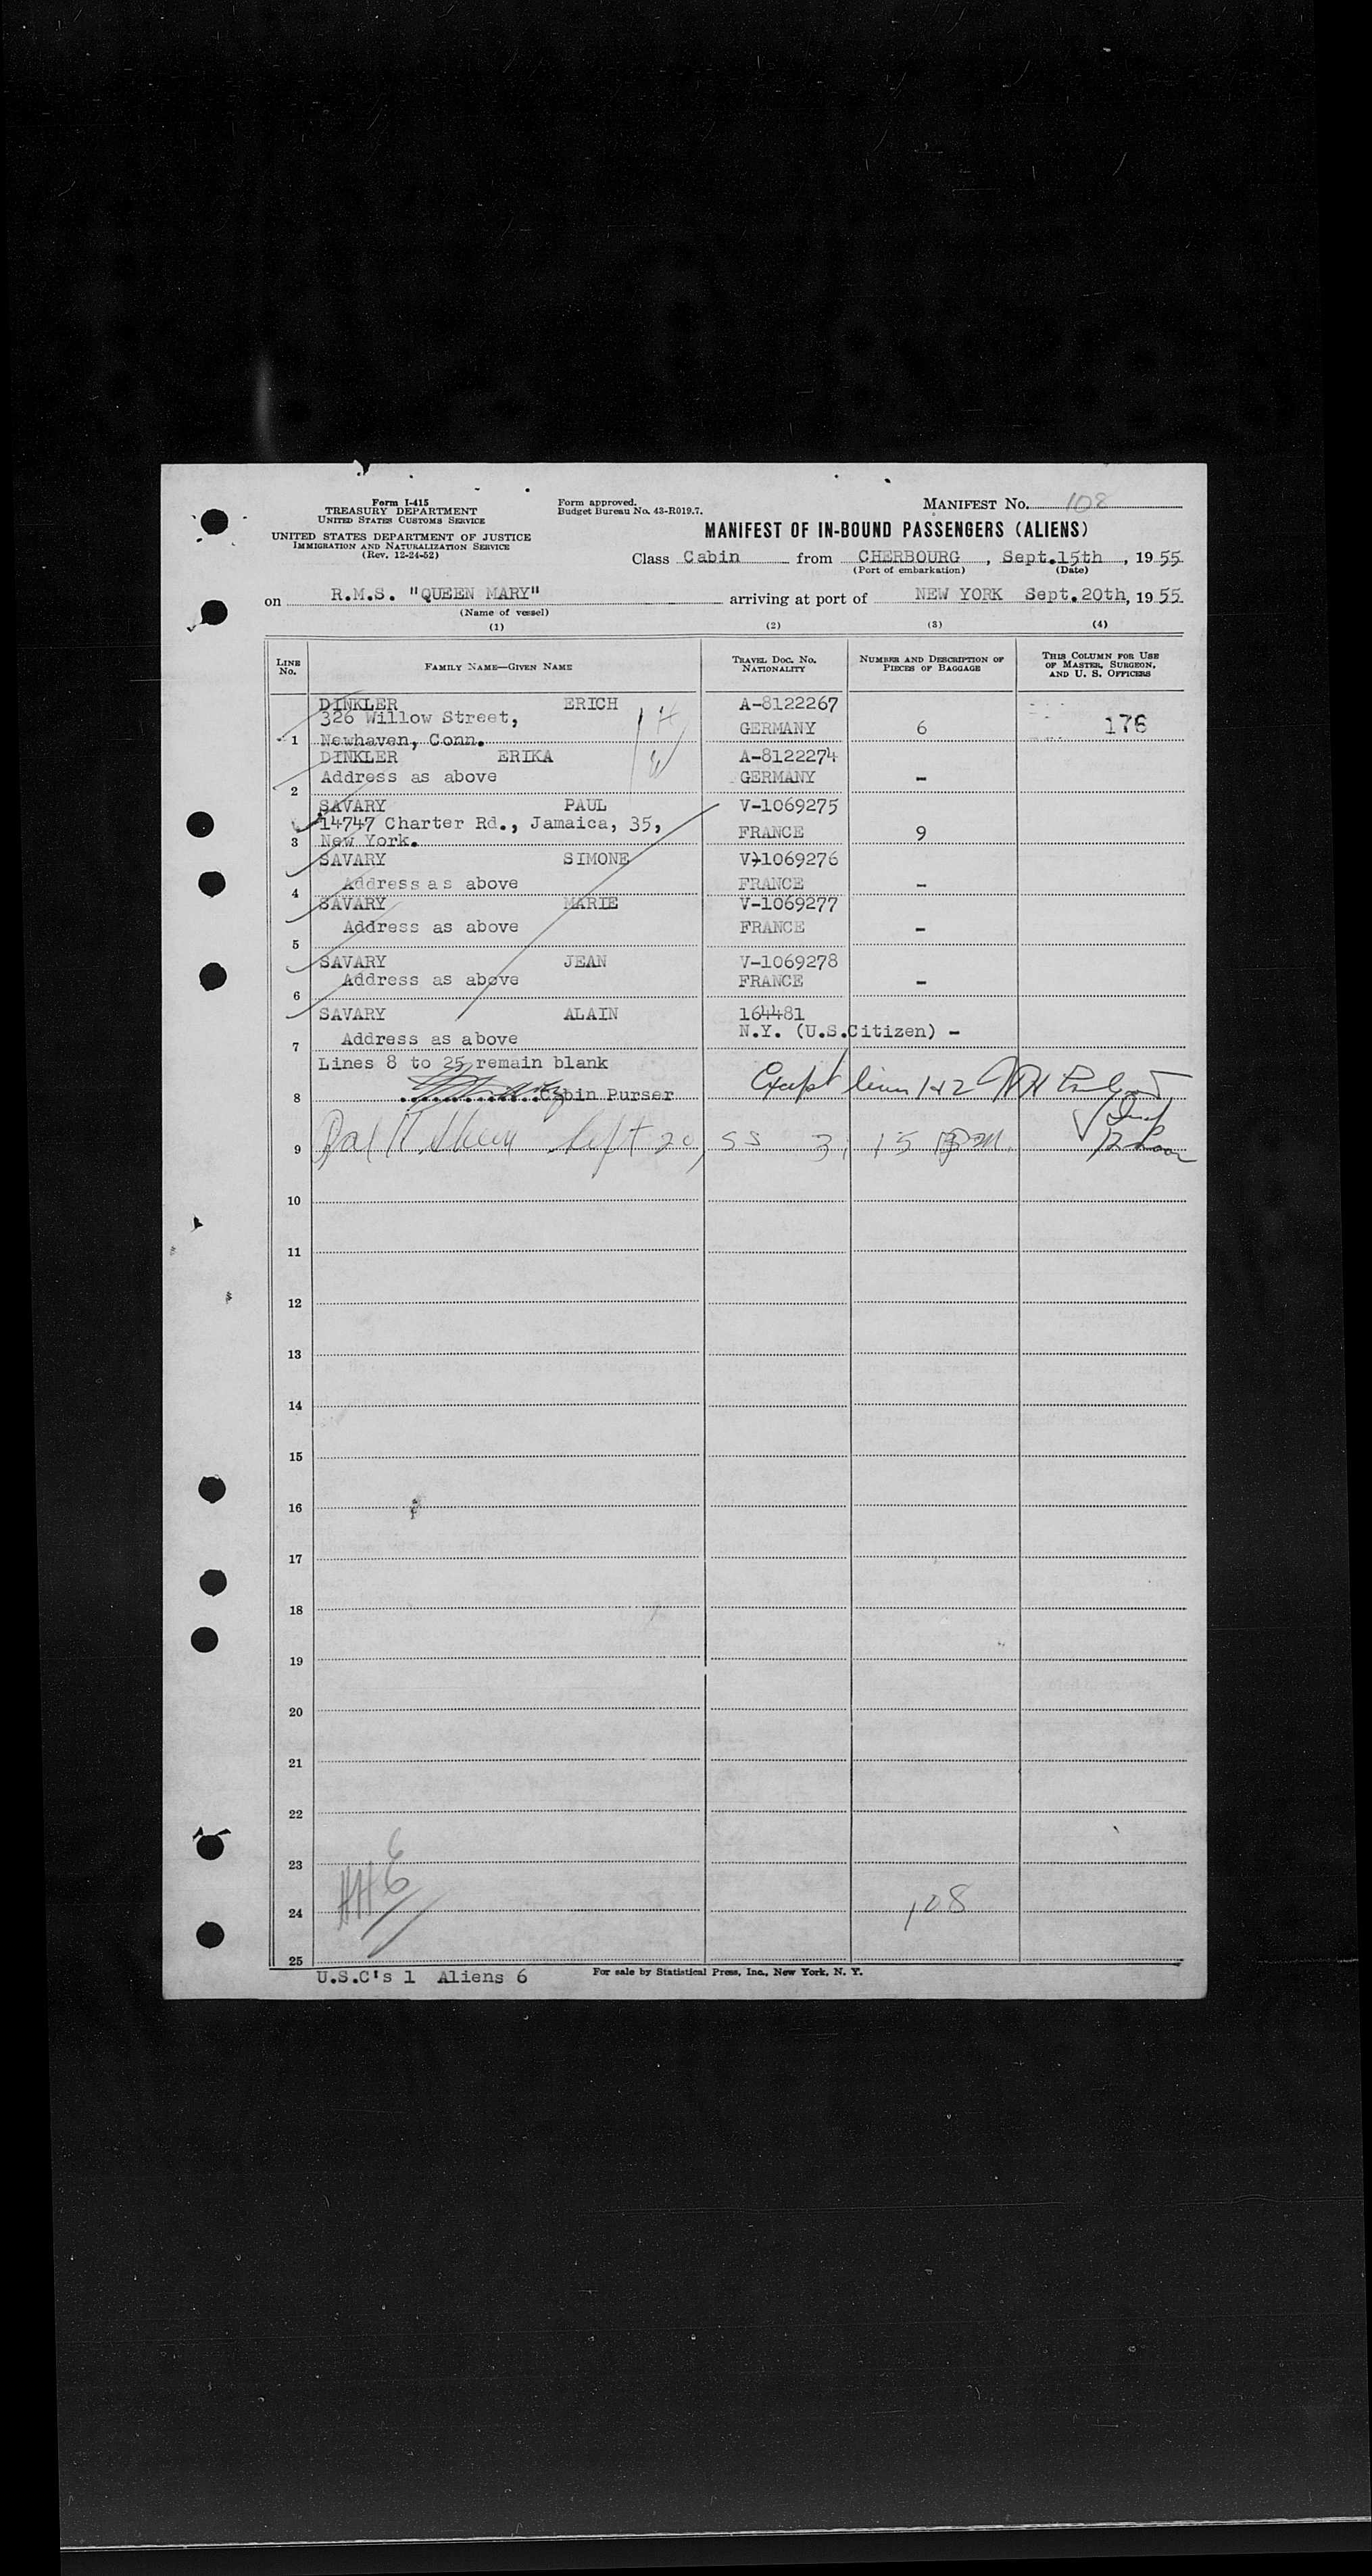 Form I-415
TREASURY DEPARTMENT
UNITED STATES CUSTOMS SERVICE
UNITED STATES DEPARTMENT OF JUSTICE
IMMIGRATION AND NATURALIZATION SERVICE
(Rev. 12-24-52)
Form approved.
Budget Bureau No. 43-R019.7.
MANIFEST No. 108
MANIFEST OF IN-BOUND PASSENGERS (ALIENS)
Class Cabin from CHERBOURG, Sept.15th, 1955
(Port of embarkation) (Date)
on R.M.S. "QUEEN MARY" arriving at port of NEW YORK Sept.20th, 1955
(Name of vessel)
(1) (2) (3) (4)
LINE No. FAMILY NAME—GIVEN NAME TRAVEL DOC. No. NATIONALITY NUMBER AND DESCRIPTION OF PIECES OF BAGGAGE THIS COLUMN FOR USE OF MASTER, SURGEON, AND U. S. OFFICERS
DINKLER ERICH A-8122267
326 Willow Street, H GERMANY 6 176
1 Newhaven, Conn.
DINKLER ERIKA W A-8122274
Address as above GERMANY -
2
SAVARY PAUL V-1069275
14747 Charter Rd., Jamaica, 35, FRANCE 9
3 New York.
SAVARY SIMONE V-1069276
4 Address as above FRANCE -
SAVARY MARIE V-1069277
Address as above FRANCE -
5
SAVARY JEAN V-1069278
Address as above FRANCE -
6
SAVARY ALAIN 164481
N.Y. (U.S.Citizen) -
7 Address as above
Lines 8 to 25 remain blank
8 Cabin Purser Except lines 1+2
9 Sept 20, 55 3:15 PM
10
11
12
13
14
15
16
17
18
19
20
21
22
23
24 108
25
U.S.C's 1 Aliens 6 For sale by Statistical Press, Inc., New York, N. Y.